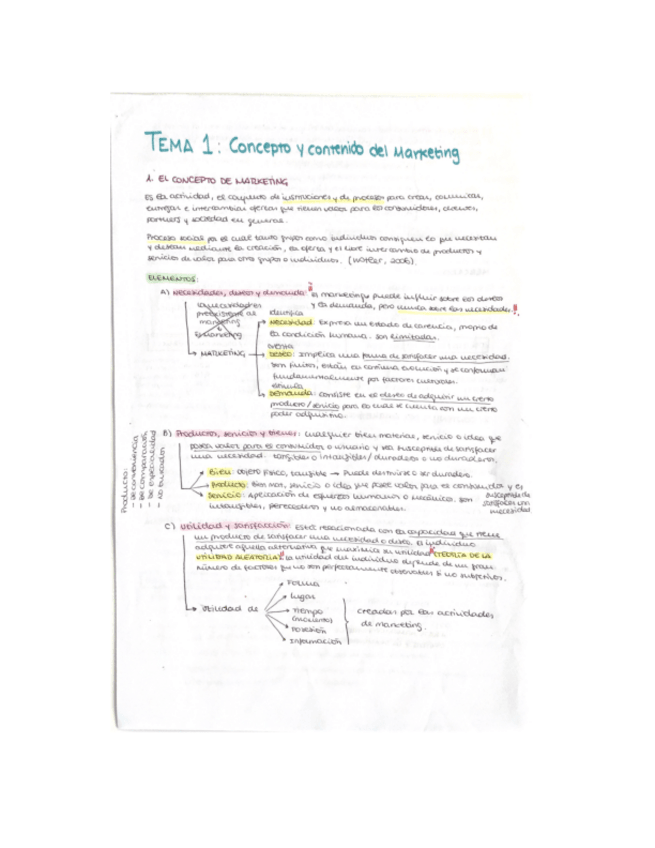 TEMA 1: Concepto y contenido del Marketing
1. EL CONCEPTO DE MARKETING
Es la actividad, el conjunto de instituciones y de procesos para crear, comunicar,
entregar e intercambiar ofertas que tienen valor para los consumidores, clientes,
partners y sociedad en general.
Proceso social por el cual tanto grupos como individuos consiguen lo que necesitan
y desean mediante la creación, la oferta y el libre intercambio de productos y
servicios de valor para otros grupos o individuos. (Kotler, 2006).
ELEMENTOS:
A) Necesidades, deseos y demanda: El marketing puede influir sobre los deseos
y la demanda, pero nunca sobre las necesidades!!
las necesidades
preexisten al
marketing
El marketing
→ MARKETING
identifica
Necesidad: Expresa un estado de carencia, propio de
la condición humana. Son limitadas.
orienta
Deseo: Implica una forma de satisfacer una necesidad.
Son finitos, están en continua evolución y se conforman
fundamentalmente por factores culturales.
estimula
Demanda: consiste en el deseo de adquirir un cierto
producto/servicio para lo cual se cuenta con un cierto
poder adquisitivo.
B) Productos, servicios y bienes: Cualquier bien material, servicio o idea que
posea valor para el consumidor o usuario y sea susceptible de satisfacer
una necesidad. Tangibles o intangibles / duraderos o no duraderos.
Bien: Objeto físico, tangible → Puede destruirse o ser duradero.
Producto: Bien mat, servicio o idea que posee valor para el consumidor y es
susceptible de
satisfacer una
necesidad
Servicio: Aplicación de esfuerzos humanos o mecánicos. Son
intangibles, perecederos y no almacenables.
Producto:
- De conveniencia
- De comparación
- De especialidad
- No buscados
C) Utilidad y satisfacción: Está relacionada con la capacidad que tiene
un producto de satisfacer una necesidad o deseo. El individuo
adquiere aquella alternativa que maximiza su utilidad (TEORÍA DE LA
UTILIDAD ALEATORIA). La utilidad del individuo depende de un gran
número de factores que no son perfectamente observables si no subjetivos.
→ Utilidad de
Forma
Lugar
Tiempo
Posesión
Información
creadas por las actividades
de marketing.